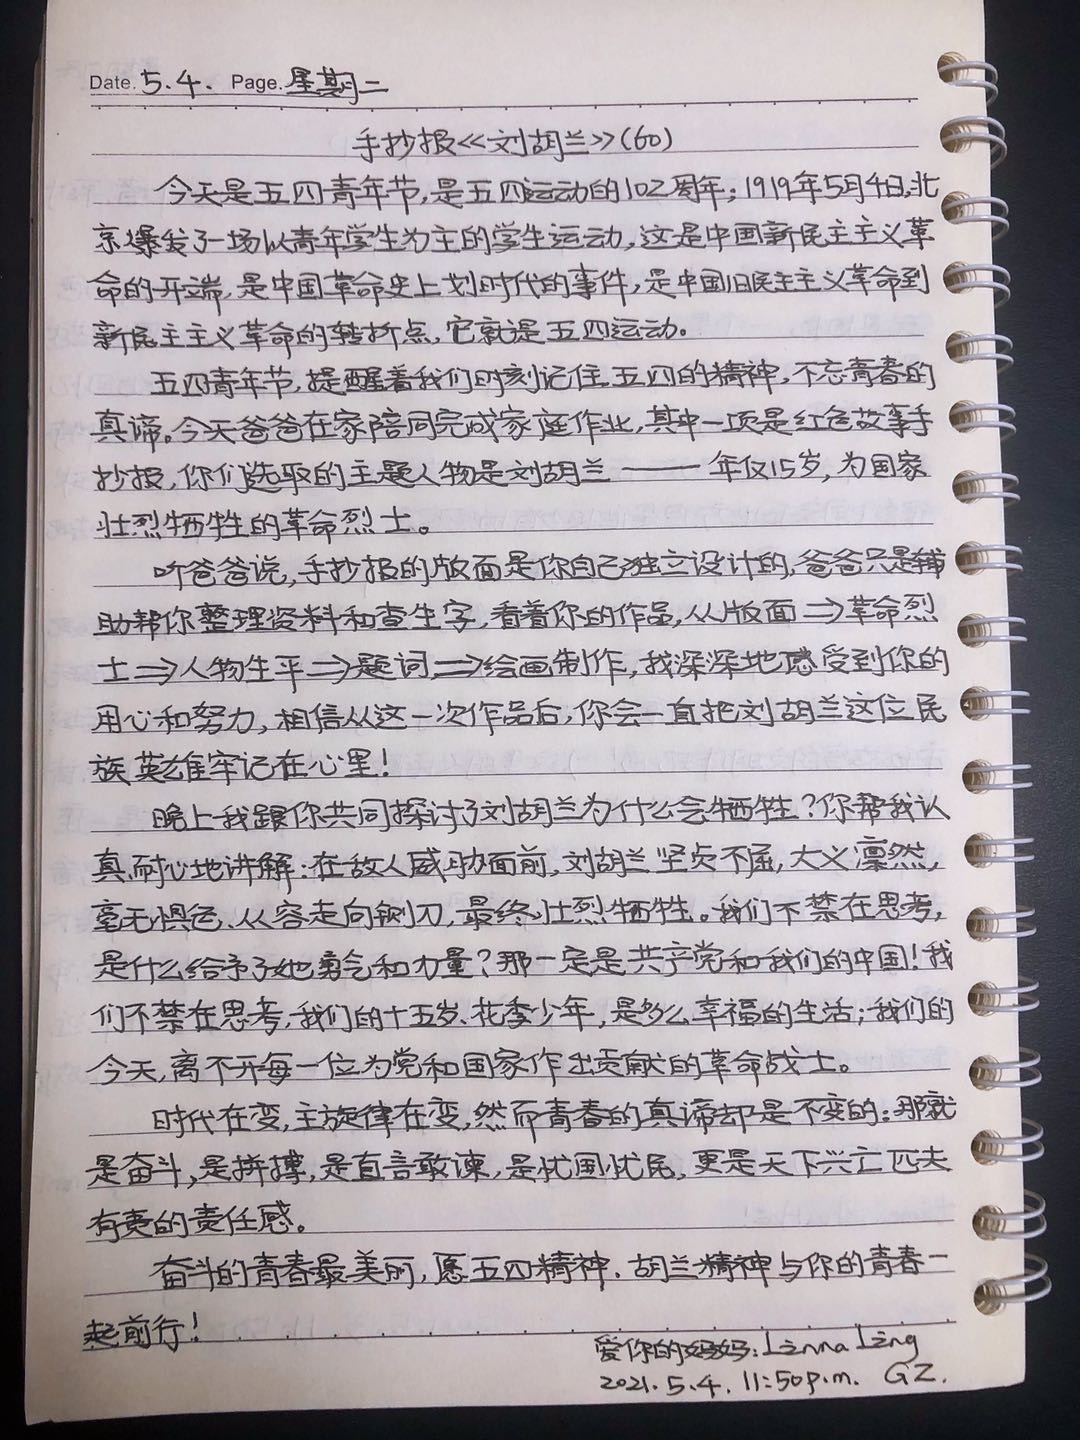 Date. 5.4. Page. 星期二
手抄报《刘胡兰》(60)
今天是五四青年节,是五四运动的102周年;1919年5月4日,北
京爆发了一场以青年学生为主的学生运动,这是中国新民主主义革
命的开端,是中国革命史上划时代的事件,是中国旧民主主义革命到
新民主主义革命的转折点,它就是五四运动。
五四青年节,提醒着我们时刻记住五四的精神,不忘青春的
真谛。今天爸爸在家陪同完成家庭作业,其中一项是红色故事手
抄报,你们选取的主题人物是刘胡兰——年仅15岁,为国家
壮烈牺牲的革命烈士。
听爸爸说,手抄报的版面是你自己独立设计的,爸爸只是辅
助帮你整理资料和查生字,看着你的作品,从版面⇒革命烈
士⇒人物生平⇒题词⇒绘画制作,我深深地感受到你的
用心和努力,相信从这一次作品后,你会一直把刘胡兰这位民
族英雄牢记在心里!
晚上我跟你共同探讨了刘胡兰为什么会牺牲?你帮我认
真耐心地讲解:在敌人威胁面前,刘胡兰坚贞不屈,大义凛然,
毫无惧色、从容走向铡刀,最终壮烈牺牲。我们不禁在思考,
是什么给予了她勇气和力量?那一定是共产党和我们的中国!我
们不禁在思考,我们的十五岁、花季少年,是多么幸福的生活;我们的
今天,离不开每一位为党和国家作出贡献的革命战士。
时代在变,主旋律在变,然而青春的真谛却是不变的:那就
是奋斗,是拼搏,是直言敢谏,是忧国忧民,更是天下兴亡匹夫
有责的责任感。
奋斗的青春最美丽,愿五四精神、胡兰精神与你的青春一
起前行!
爱你的妈妈:Linna Ling
2021.5.4. 11:50p.m. GZ.